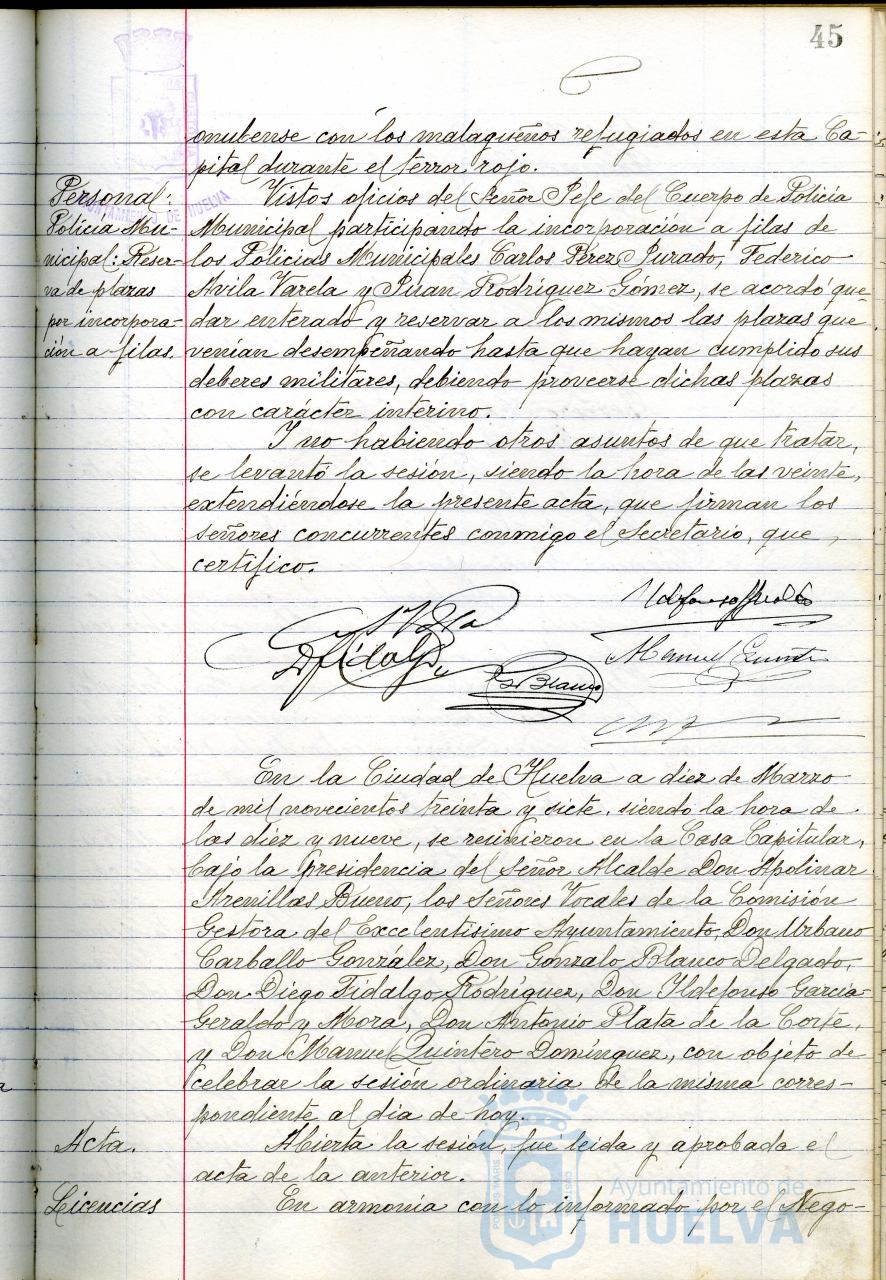 45
onubense con los malagueños refugiados en esta Ca-
pital durante el terror rojo.
Personal:
Policía Mu-
nicipal: Reser-
va de plazas
por incorpora-
ción a filas.
Vistos oficios del Señor Jefe del Cuerpo de Policía
Municipal participando la incorporación a filas de
los Policias Municipales Carlos Pérez Jurado, Federico
Avila Varela y Juan Rodríguez Gómez, se acordó que-
dar enterado y reservar a los mismos las plazas que
venían desempeñando hasta que hayan cumplido sus
deberes militares, debiendo proveerse dichas plazas
con carácter interino.
Y no habiendo otros asuntos de que tratar,
se levantó la sesión, siendo la hora de las veinte,
extendiéndose la presente acta, que firman los
señores concurrentes conmigo el Secretario, que
certifico.
D Fidalgo
G Blanco
Manuel Quintero
En la Ciudad de Huelva a diez de Marzo
de mil novecientos treinta y siete, siendo la hora de
las diez y nueve, se reunieron en la Casa Capitular,
bajo la presidencia del Señor Alcalde Don Apolinar
Arenillas Bueno, los Señores Vocales de la Comisión
Gestora del Excelentísimo Ayuntamiento, Don Urbano
Carballo González, Don Gonzalo Blanco Delgado,
Don Diego Fidalgo Rodríguez, Don Ildefonso García-
Geraldo y Mora, Don Antonio Plata de la Corte,
y Don Manuel Quintero Domínguez, con objeto de
celebrar la sesión ordinaria de la misma corres-
pondiente al dia de hoy.
Acta.
Abierta la sesión, fué leida y aprobada el
acta de la anterior.
Licencias
En armonía con lo informado por el Nego-
AYUNTAMIENTO DE HUELVA
Ayuntamiento de
HUELVA